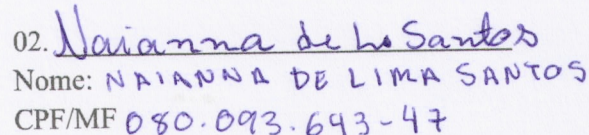 02. Naianna de L. Santos
Nome: NAIANNA DE LIMA SANTOS
CPF/MF 080.093.643-47